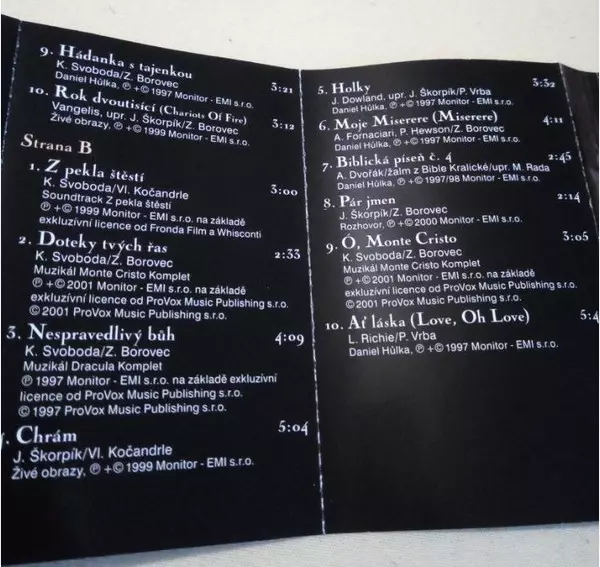 9. Hádanka s tajenkou
K. Svoboda/Z. Borovec
Daniel Hůlka, ℗ +© 1997 Monitor - EMI s.r.o. 3:21
10. Rok dvoutisící (Chariots Of Fire)
Vangelis, upr. J. Škorpík/Z. Borovec
Živé obrazy, ℗ +© 1999 Monitor - EMI s.r.o. 3:12
Strana B
1. Z pekla štěstí
K. Svoboda/Vl. Kočandrle 3:00
Soundtrack Z pekla štěstí
℗ +© 1999 Monitor - EMI s.r.o. na základě
exkluzivní licence od Fronda Film a Whisconti
2. Doteky tvých řas 2:33
K. Svoboda/Z. Borovec
Muzikál Monte Cristo Komplet
℗ +© 2001 Monitor - EMI s.r.o. na základě
exkluzívní licence od ProVox Music Publishing s.r.o.
© 2001 ProVox Music Publishing s.r.o.
3. Nespravedlivý bůh 4:09
K. Svoboda/Z. Borovec
Muzikál Dracula Komplet
℗ 1997 Monitor - EMI s.r.o. na základě exkluzívní
licence od ProVox Music Publishing s.r.o.
© 1997 ProVox Music Publishing s.r.o.
Chrám 5:04
J. Škorpík/Vl. Kočandrle
Živé obrazy, ℗ +© 1999 Monitor - EMI s.r.o.
5. Holky 3:32
J. Dowland, upr. J. Škorpík/P. Vrba
Daniel Hůlka, ℗ +© 1997 Monitor - EMI s.r.o.
6. Moje Miserere (Miserere) 4:11
A. Fornaciari, P. Hewson/Z. Borovec
Daniel Hůlka, ℗ +© 1997 Monitor - EMI s.r.o.
7. Biblická píseň č. 4 2:45
A. Dvořák/žalm z Bible Kralické/upr. M. Rada
Daniel Hůlka, ℗ +© 1997/98 Monitor - EMI s.r.o.
8. Pár jmen 2:14
J. Škorpík/Z. Borovec
Rozhovor, ℗ +© 2000 Monitor - EMI s.r.o.
9. Ó, Monte Cristo 3:05
K. Svoboda/Z. Borovec
Muzikál Monte Cristo Komplet
℗ +© 2001 Monitor - EMI s.r.o. na základě
exkluzívní licence od ProVox Music Publishing s.r.o.
© 2001 ProVox Music Publishing s.r.o.
10. Ať láska (Love, Oh Love)
L. Richie/P. Vrba
Daniel Hůlka, ℗ +© 1997 Monitor - EMI s.r.o.